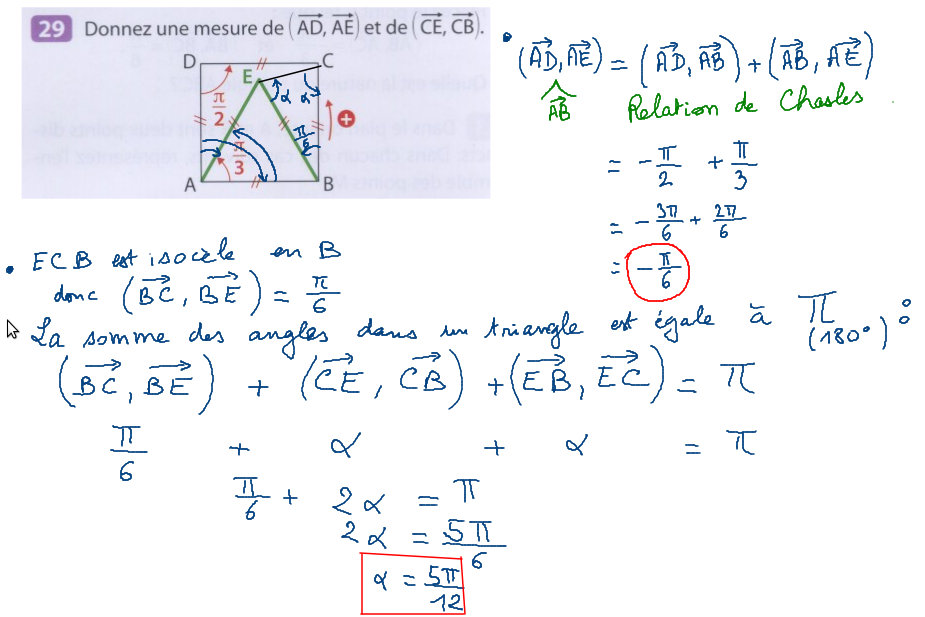 29 Donnez une mesure de (AD, AE) et de (CE, CB).
D
C
E
α
α
π/2
π/6
+
π/3
A
B
• (AD, AE) = (AD, AB) + (AB, AE)
AB Relation de Chasles
= -π/2 + π/3
= -3π/6 + 2π/6
= -π/6
• ECB est isocèle en B
donc (BC, BE) = π/6
La somme des angles dans un triangle est égale à π (180°) :
(BC, BE) + (CE, CB) + (EB, EC) = π
π/6 + α + α = π
π/6 + 2α = π
2α = 5π/6
α = 5π/12